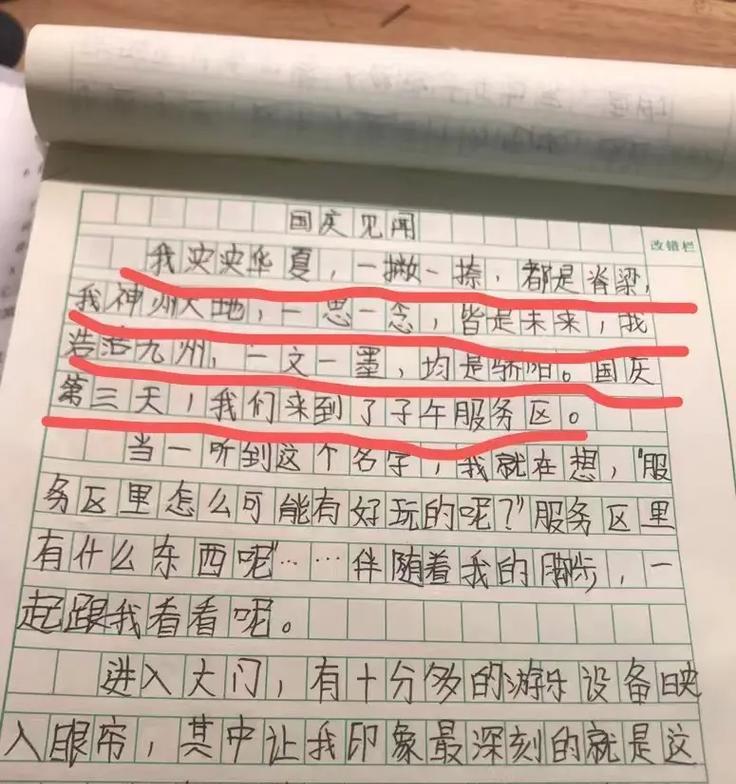 国庆见闻
改错栏
我泱泱华夏，一撇一捺，都是脊梁，
我神州大地，一思一念，皆是未来，我
浩浩九州，一文一墨，均是骄阳。国庆
第三天，我们来到了子午服务区。
当一听到这个名字，我就在想，"服
务区里怎么可能有好玩的呢？"服务区里
有什么东西呢"……伴随着我的脚步，一
起跟我看看呢。
进入大门，有十分多的游乐设备映
入眼帘，其中让我印象最深刻的就是这